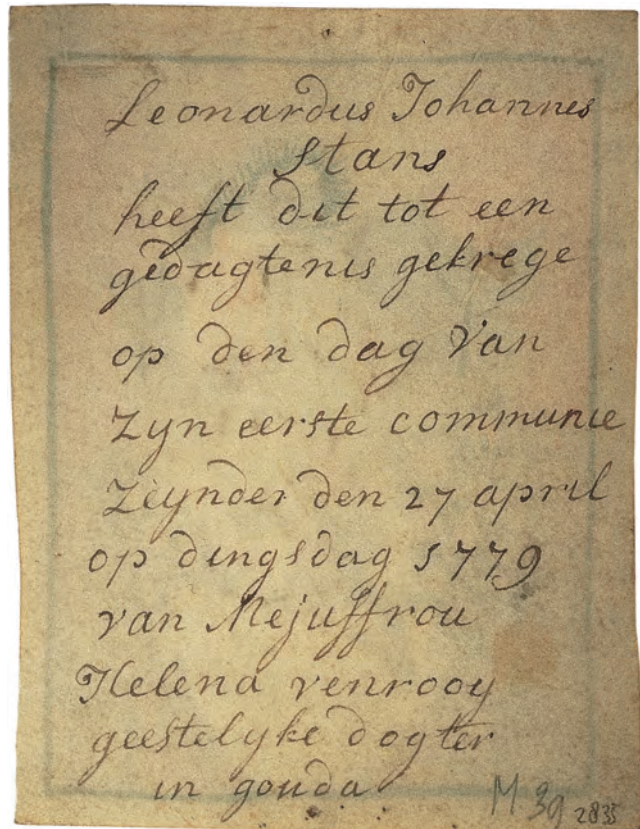 Leonardus Johannes
Stans
heeft dit tot een
gedagtenis gekrege
op den dag van
zyn eerste communie
Zeynder den 27 april
op dingsdag 1779
van Mejuffrou
Helena venrooy
geestelyke dogter
in gouda
M 39 2835